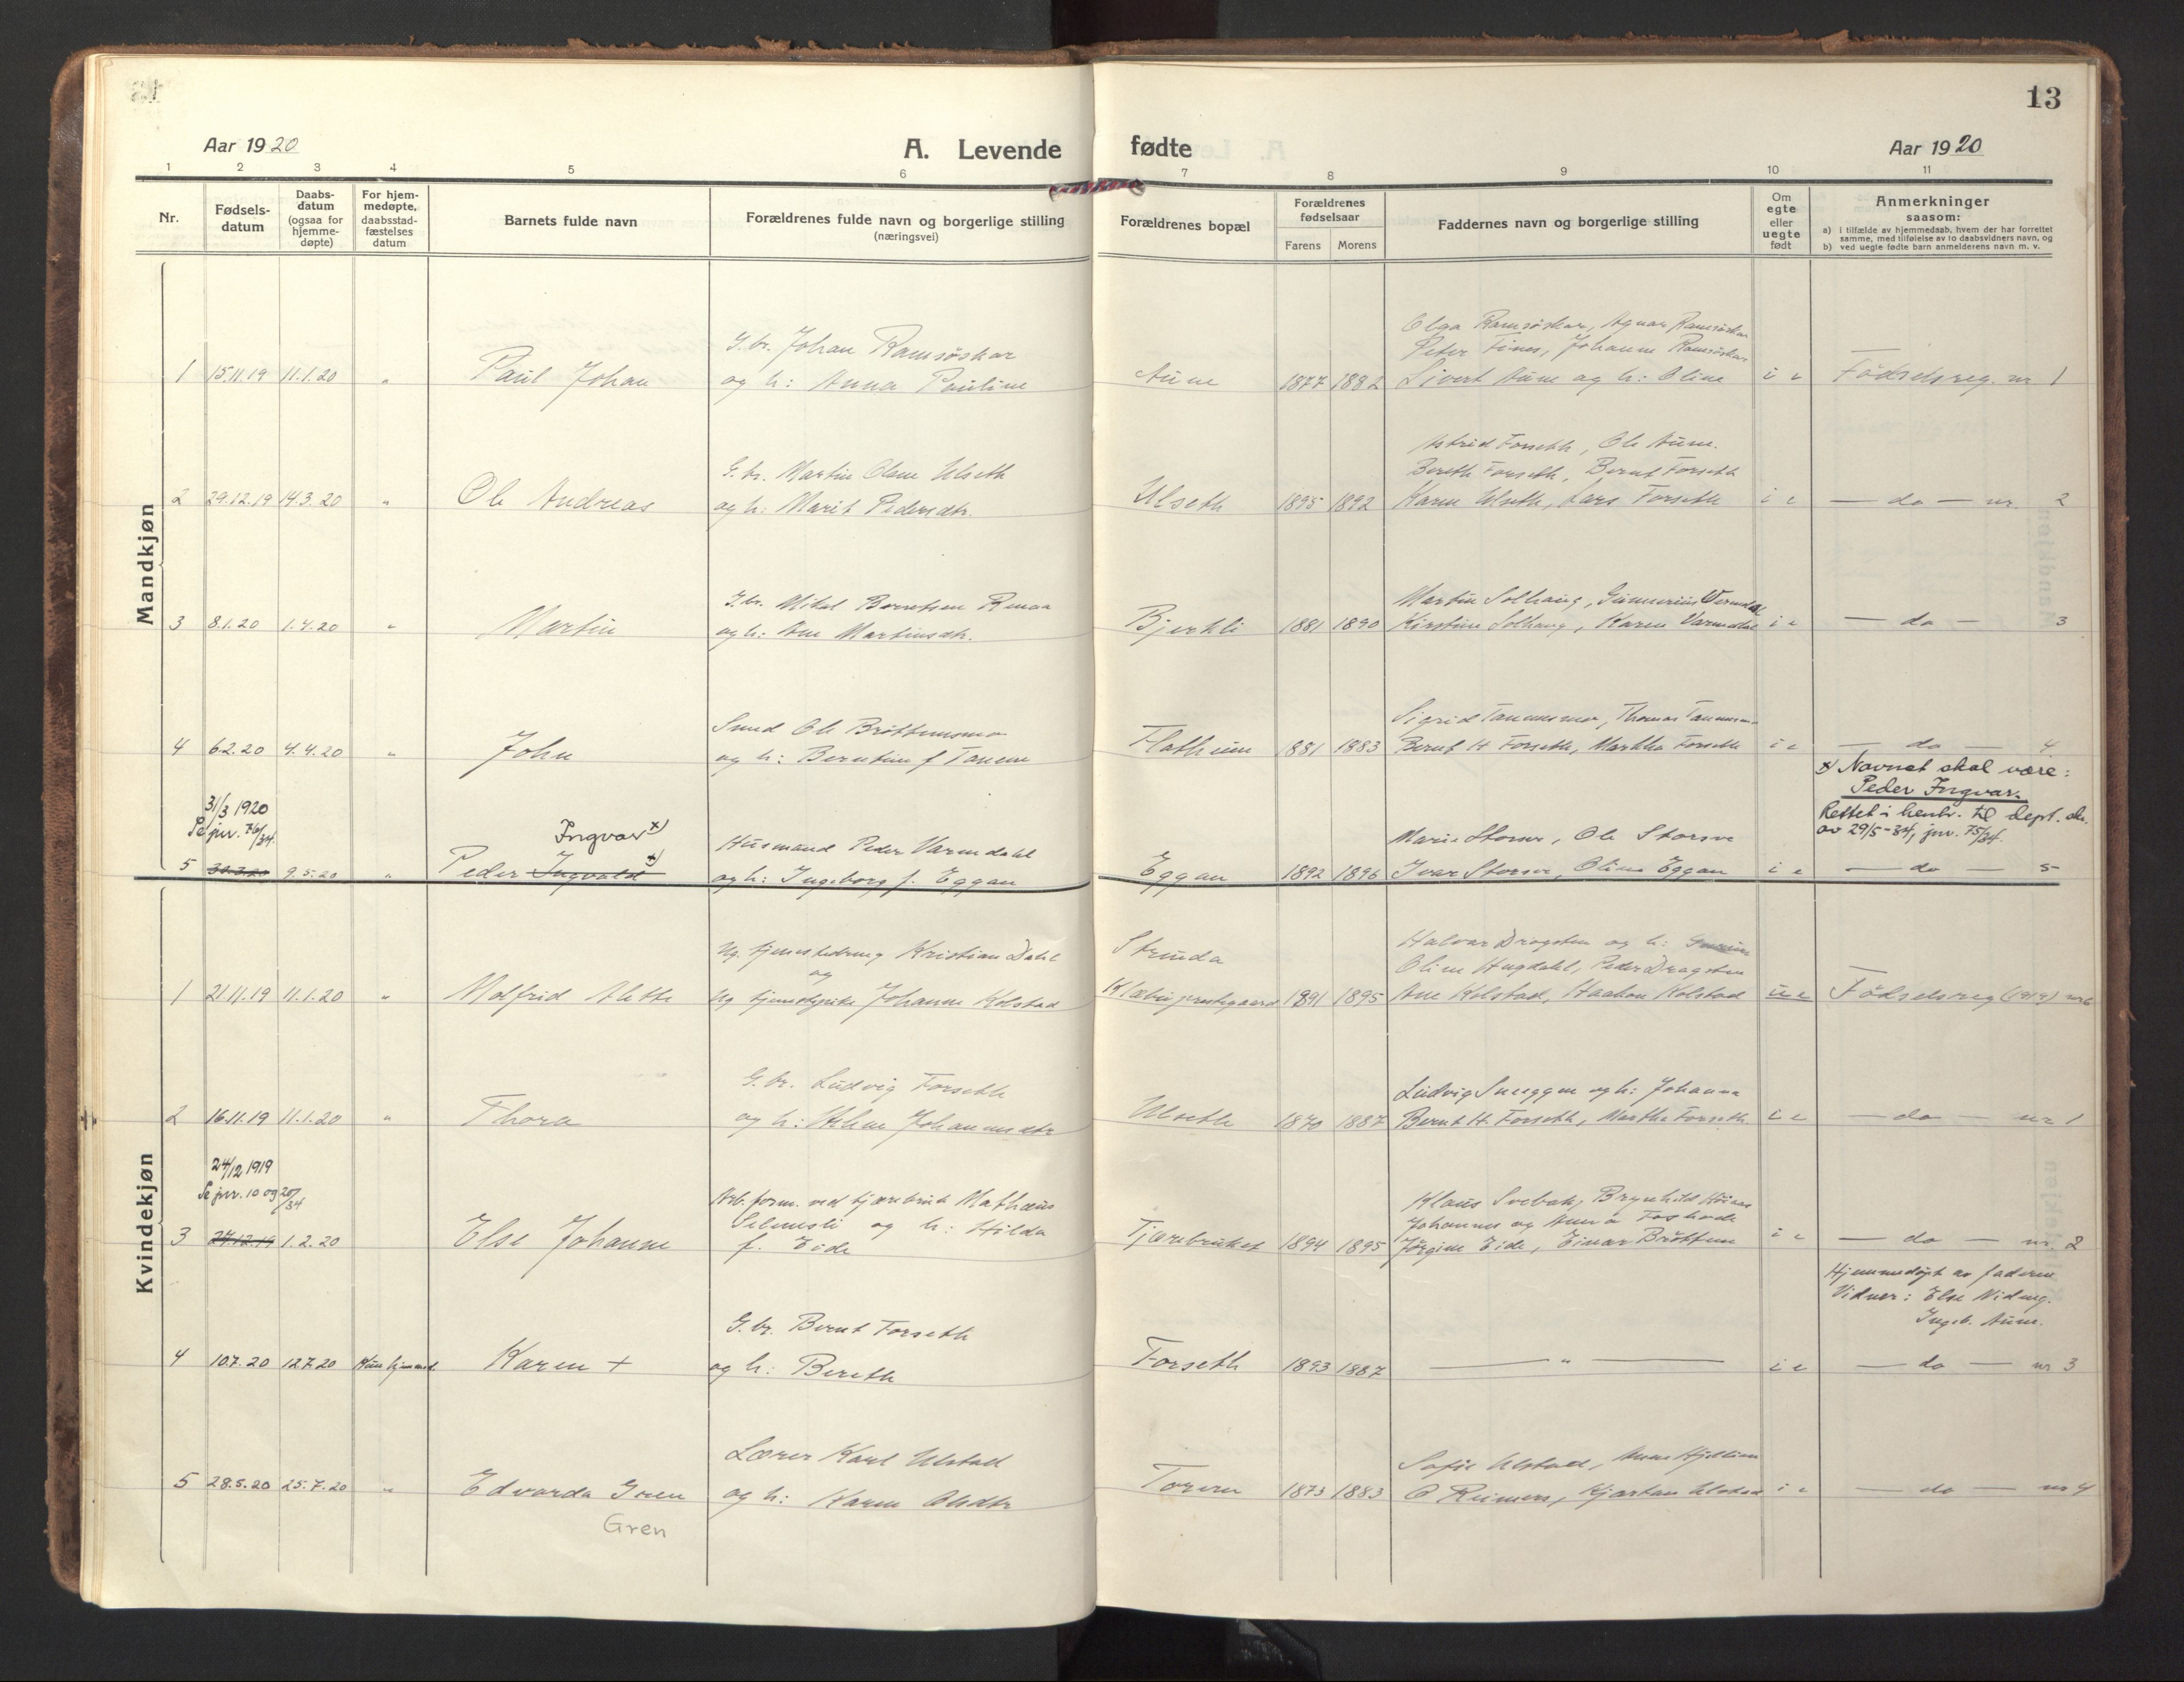 13
Aar 1920
A. Levende fødte
Aar 1920
1 2 3 4 5 6 7 8 9 10 11
Nr.
Fødsels-
datum
Daabs-
datum
(ogsaa for
hjemme-
døpte)
For hjem-
medøpte,
daabsstad-
fæstelses
datum
Barnets fulde navn
Forældrenes fulde navn og borgerlige stilling
(næringsvei)
Forældrenes bopæl
Forældrenes
fødselsaar
Farens Morens
Faddernes navn og borgerlige stilling
Om
egte
eller
uegte
født
Anmerkninger
saasom:
a) i tilfælde av hjemmedaab, hvem der har forrettet
samme, med tilføielse av to daabsvidners navn, og
b) ved uegte fødte barn anmelderens navn m. v.
Mandkjøn
G. br. Johan Ramsöskar
Olga Ramsöskar, Agnar Ramsöskar
Peter Fines, Johanne Ramsöskar
1 15.11.19 11.1.20 " Paul Johan og h: Anna Pauline Aune 1877 1882 Sivert Aune og h: Oline i e Födselsreg. nr 1
G. br. Martin Olsen Ulseth
Astrid Forseth, Ole Aune.
Bereth Forseth, Bernt Forseth
2 29.12.19 14.3.20 " Ole Andreas og h: Marit Pedersdtr. Ulseth 1895 1892 Karen Ulseth, Lars Forseth i e — do — nr. 2
G. br. Mikal Berntsen
Martin Solhaug,
3 8.1.20 1.4.20 " Martin og h: Ane Martinsdtr. Bjerkli 1881 1890 Kirstine Solhaug, Karen Varmdal i e — do — 3
Smed Ole Bröttemsmo
Sigrid Tanemsmo, Thomas Tanemsmo
4 6.2.20 4.4.20 " John og h: Berntine f Tanem Flatheim 1881 1883 Bernt H Forseth, Martha Forseth i e — do — 4
x) Navnet skal være:
Peder Ingvar.
Rettet i henh. til dept. skr.
av 29/5-34, jnr. 75/34.
31/3 1920
Se jnr. 76/34.
Ingvar x)
Husmand Peder Varmdahl
Marie Storsve, Ole Storsve
5 30.3.20 9.5.20 " Peder Ingvald x) og h: Ingeborg f. Eggan Eggan 1892 1896 Ivar Storsve, Oline Eggan i e — do — 5
Kvindekjøn
Ug. tjenestedreng Kristian Dahl
og
Strinda
Halvar Dragsten og h:
Oline Hugdahl, Peder Dragsten
1 21.11.19 11.1.20 " Molfrid Alette Ug tjenestepike Johanne Kolstad Klæbu prestegaard 1891 1895 Ane Kolstad, Haakon Kolstad u e Födselsreg (1919) nr 6
G. br. Ludvig Forseth
Ludvig Sneeggen og h: Johanna
2 16.11.19 11.1.20 " Thora og h: Johannesdtr Ulseth 1870 1887 Bernt H. Forseth, Martha Forseth i e — do — nr 1
24/12 1919
Se jnr. 10 og 20/34
Arb. form. ved tjærebruk Mathæus
Selmesli og h: Hilda
Klaus Svebak, Brynhild
Johannes og Anna
3 27.12.19 1.2.20 Else Johanne f. Eide Tjærebruket 1894 1895 Jörgine Eide, Einar Bröttem i e — do — nr. 2
Hjemmedøpt av faderen
Vidner: Else Nideng.
Ingeb. Aune.
G. br. Bernt Forseth
4 10.7.20 12.7.20 Kun hjemmed. Karen + og h: Bereth Forseth 1893 1887 — " — i e — do — nr 3
Lærer Karl Ulstad
Sofie Ulstad, Anna
5 28.5.20 25.7.20 " Edvarda Gren og h: Karen Olsdtr Torven 1873 1883 O Reimers, Kjartan Ulstad i e — do — nr 4
Gren